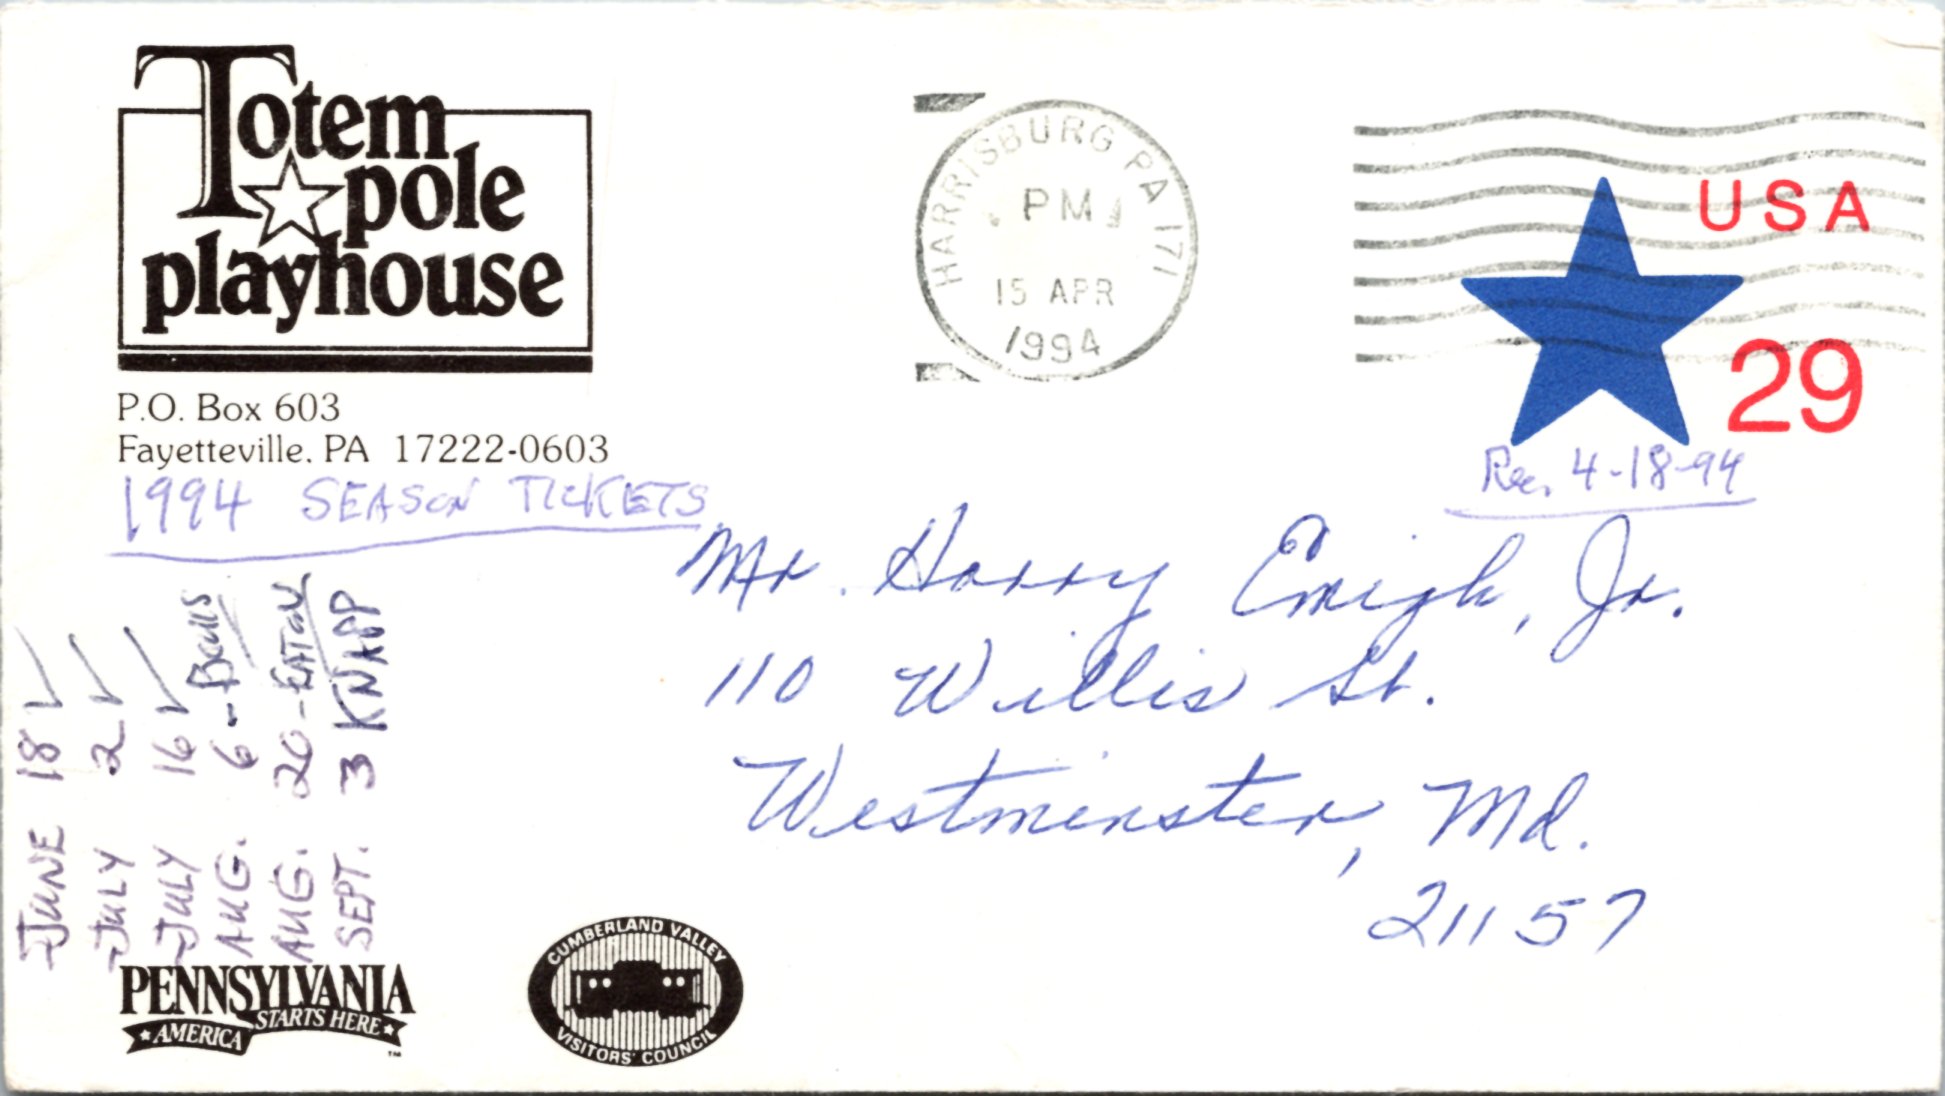 Totem
pole
playhouse
P.O. Box 603
Fayetteville, PA 17222-0603
1994 SEASON TICKETS
HARRISBURG PA 171
PM
15 APR
1994
USA
29
Rec. 4-18-94
Mr. Harry Emigh, Jr.
110 Willis St.
Westminster, Md.
21157
JUNE 18 ✓
JULY 2 ✓
JULY 16 ✓
AUG. 6 -
AUG. 20 - EATON
SEPT. 3 KNAPP
PENNSYLVANIA
★ AMERICA STARTS HERE ★ ™
CUMBERLAND VALLEY
VISITORS' COUNCIL